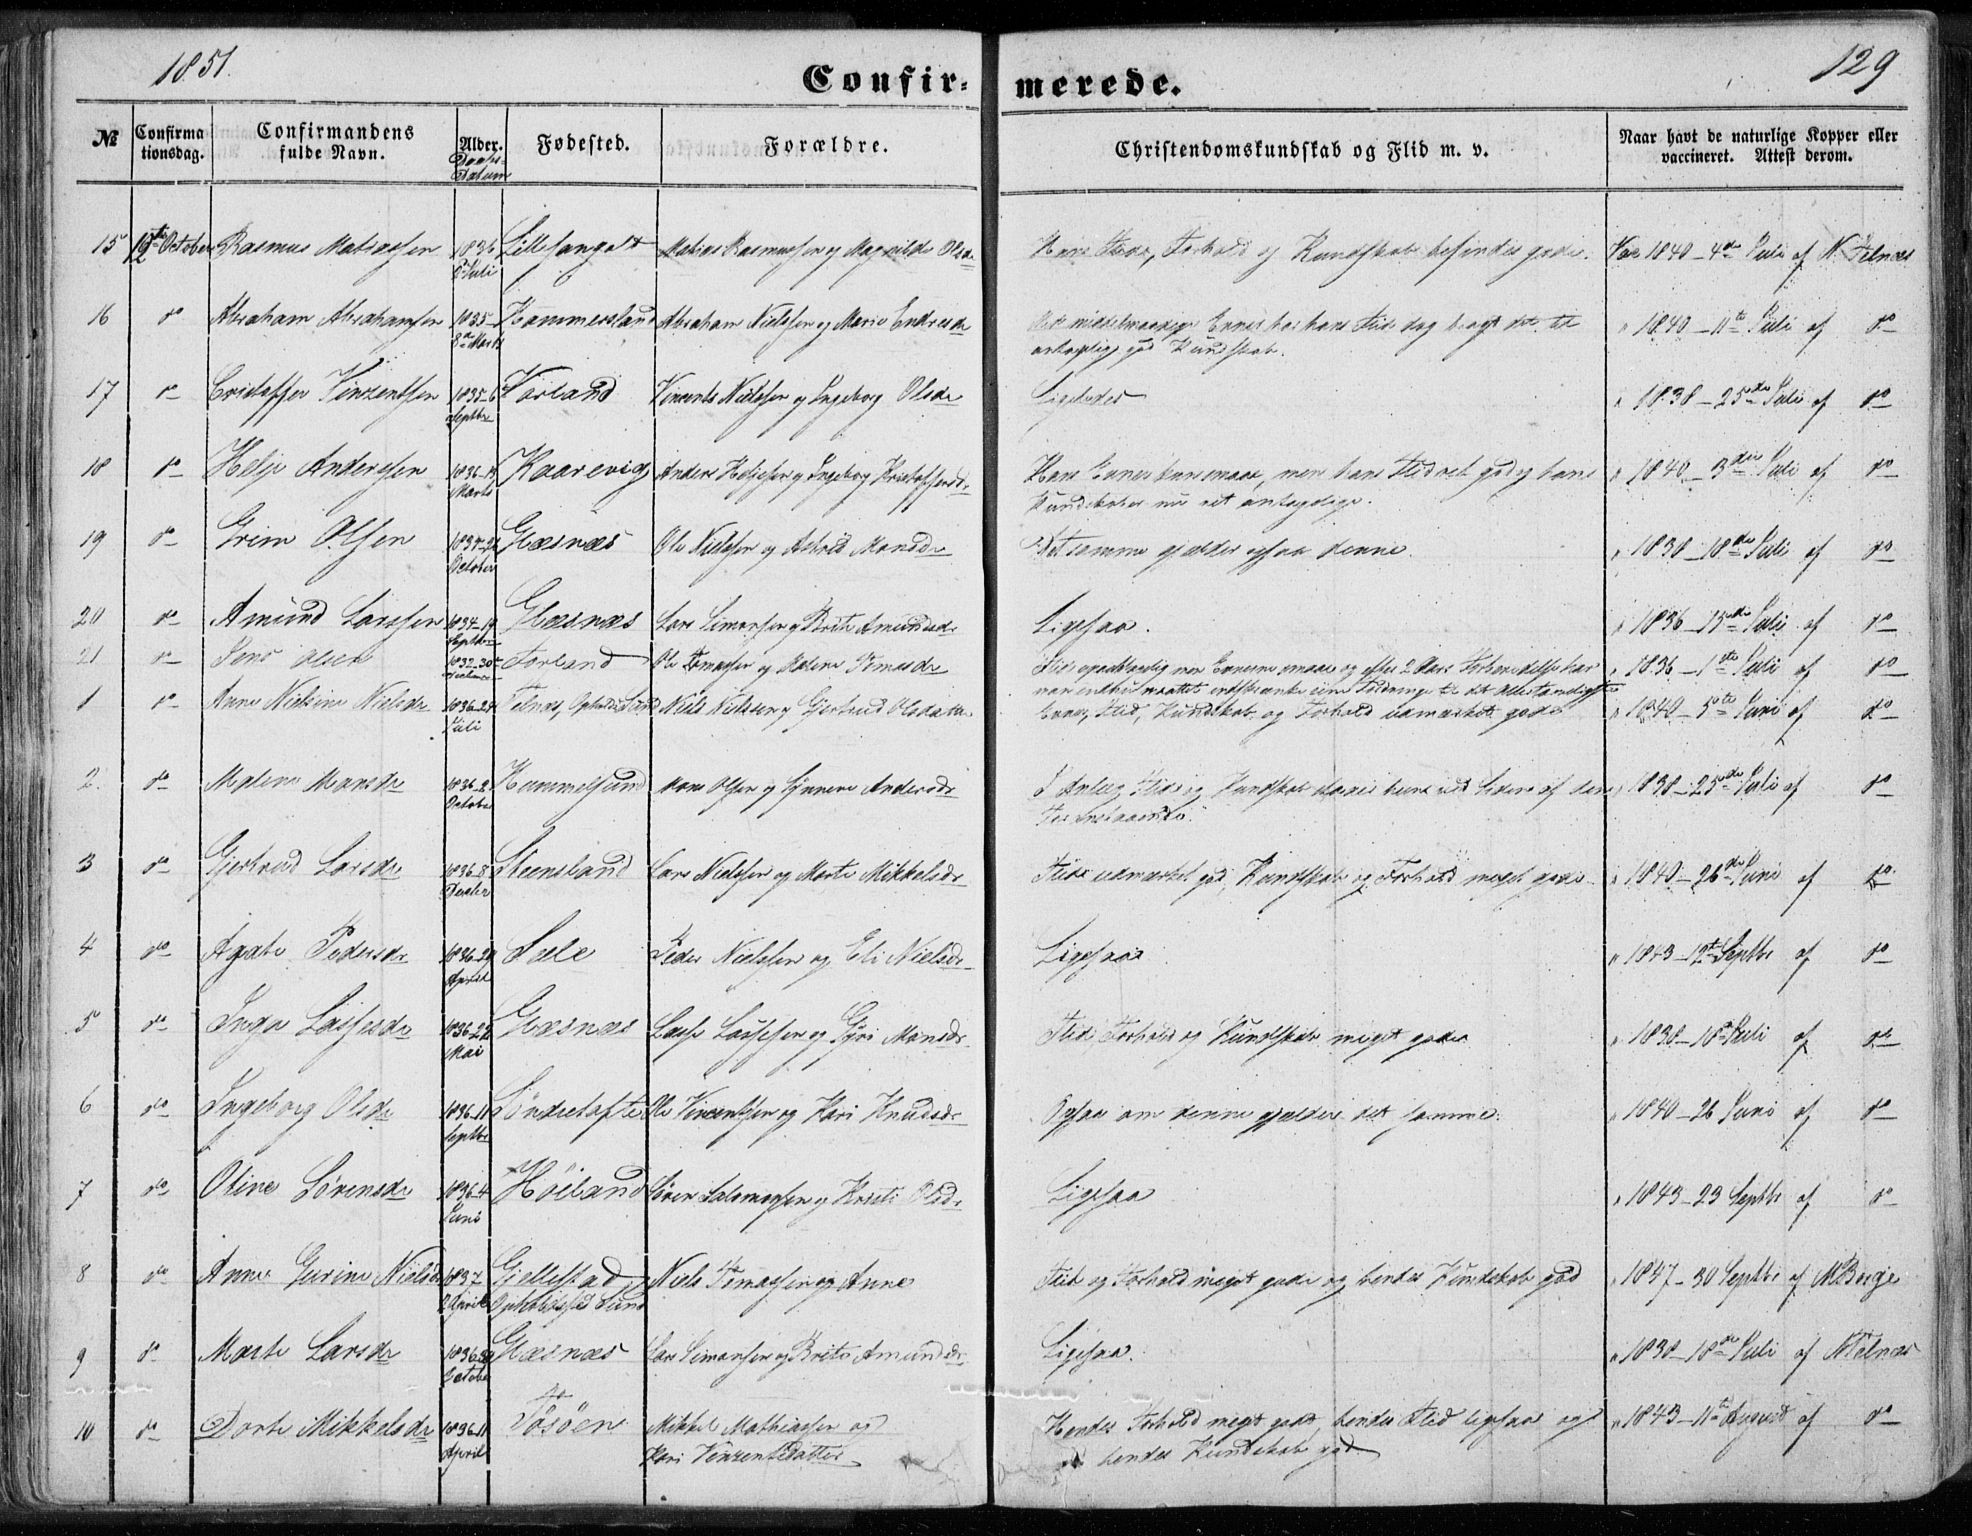 1851.
129
Confir- merede.
№ Confirma tionsdag. Confirmandens fulde Navn. Alder. Daabs- Datum Fødested. Forældre. Christendomskundskab og Flid m. v. Naar havt de naturlige Kopper eller vaccineret. Attest derom.
15 12te October Rasmus Matiassen 1836 Juli Lillesangolt Matias Rasmussen og Magnilde Olsdr Hans Flid, Forhold og Kundskab befindes gode. Vac 1840 - 4de Juli af N. Telnæs
16 do Abraham Abrahamsen 1835 8de Marts Hammersland Abraham Nielssen og Marie Endresdr Med middelmaadige Evner har hans Flid dog bragt det til
antagelig god Kundskab. " 1840 - 11te Juli af do
17 do Cristoffer Vinzentsen 1835-6 Septbr Vorland Vincents Nielssen og Ingeborg Olsdr Ligeledes " 1838 - 25de Juli af do
18 do Helje Anderssen 1836-19 Marts Kaarevig Anders Heljesen og Ingeborg Kristoffersdr Hans Evner kun smaa, men hans Flid ret god og hans
Kundskaber nu ret antagelige. " 1840 - 3die Juli af do
19 do Grim Olsen 1834-21 October Glæsnæs Ole Nielssen og Astrid Monsdr Det samme gjælder ogsaa denne. " 1838 - 18de Juli af do
20 do Amund Larssen 1834-19 Septbr Glæsnæs Lars Simonsen og Brite Amundsdr Ligesaa. " 1836 - 15de Juli af do
21 do Jens Olsen 1832-30te Forland Ole Tomassen og Malene Flid upaaklagelig men Evnerne smaae og efter 2 Aars Forberedelse har
man endnu maattet indskrænke sin Fordring til det allernødvendigste " 1836 - 1ste Juli af do
1 do Anne Nielsine Nielsdr 1836-29 Juli Telnæs, Opholdssted Sund Niels Nielssen og Gjertrud Olsdatter Evner, Flid, Kundskab og Forhold udmærket gode " 1840 - 5te Juni af do
2. do Malene Monsdr 1836-2 October Hammelsund Mons Olsen og Synneve Andersdr I Anlæg, Flid og Kundskab staaer hun ved Siden af den
Foranstaaende. " 1838 - 25de Juli af do
3 do Gjertrud Larsdr 1836-8 Steensland Lars Nielssen og Marte Mikkelsdr Flid udmærket god, Kundskab og Forhold meget gode " 1840 - 26de Juni af do
4 do Agate Pedersdr 1836-29 April Sæle Peder Nielssen og Eli Nielsdr Ligesaa " 1843 - 12te Septbr af do
5 do Inga Lassesdr 1836-22 Mai Glæsnæs Lasse Lassesen og Gyri Monsdr Flid, Forhold og Kundskab meget gode " 1838 - 18de Juli af do
6 do Ingeborg Olsdr 1836-11 Septbr Søndretofte Ole Vincentsen og Kari Knudsdr Ogsaa om denne gjælder det samme. " 1840 - 26 Juni af do
7 do Oline Sørensdr 1836-4 Juni Høiland Søren Salamonsen og Kristi Olsdr Ligesaa " 1843 - 23 Septbr af do
8 do Anne Gurine Nielsdr 1837 2 April Gjellestad Opholdssted Sund Niels Tomassen og Anne Flid og Forhold meget gode og hendes Kundskab god " 1847 - 30 Septbr af M Borge
9 do Marte Larsdr 1836 October Glæsnæs Lars Simonsen og Brite Amundsdr Ligesaa. " 1838 - 18de Juli af N Telnæs
10 do Dorte Mikkelsdr 1836-11 April Tøsøen Mikkel Mathiassen og
Kari Vinzentsdatter Hendes Forhold meget godt, hendes Flid ligesaa og
hendes Kundskab god " 1843 - 11te August af do